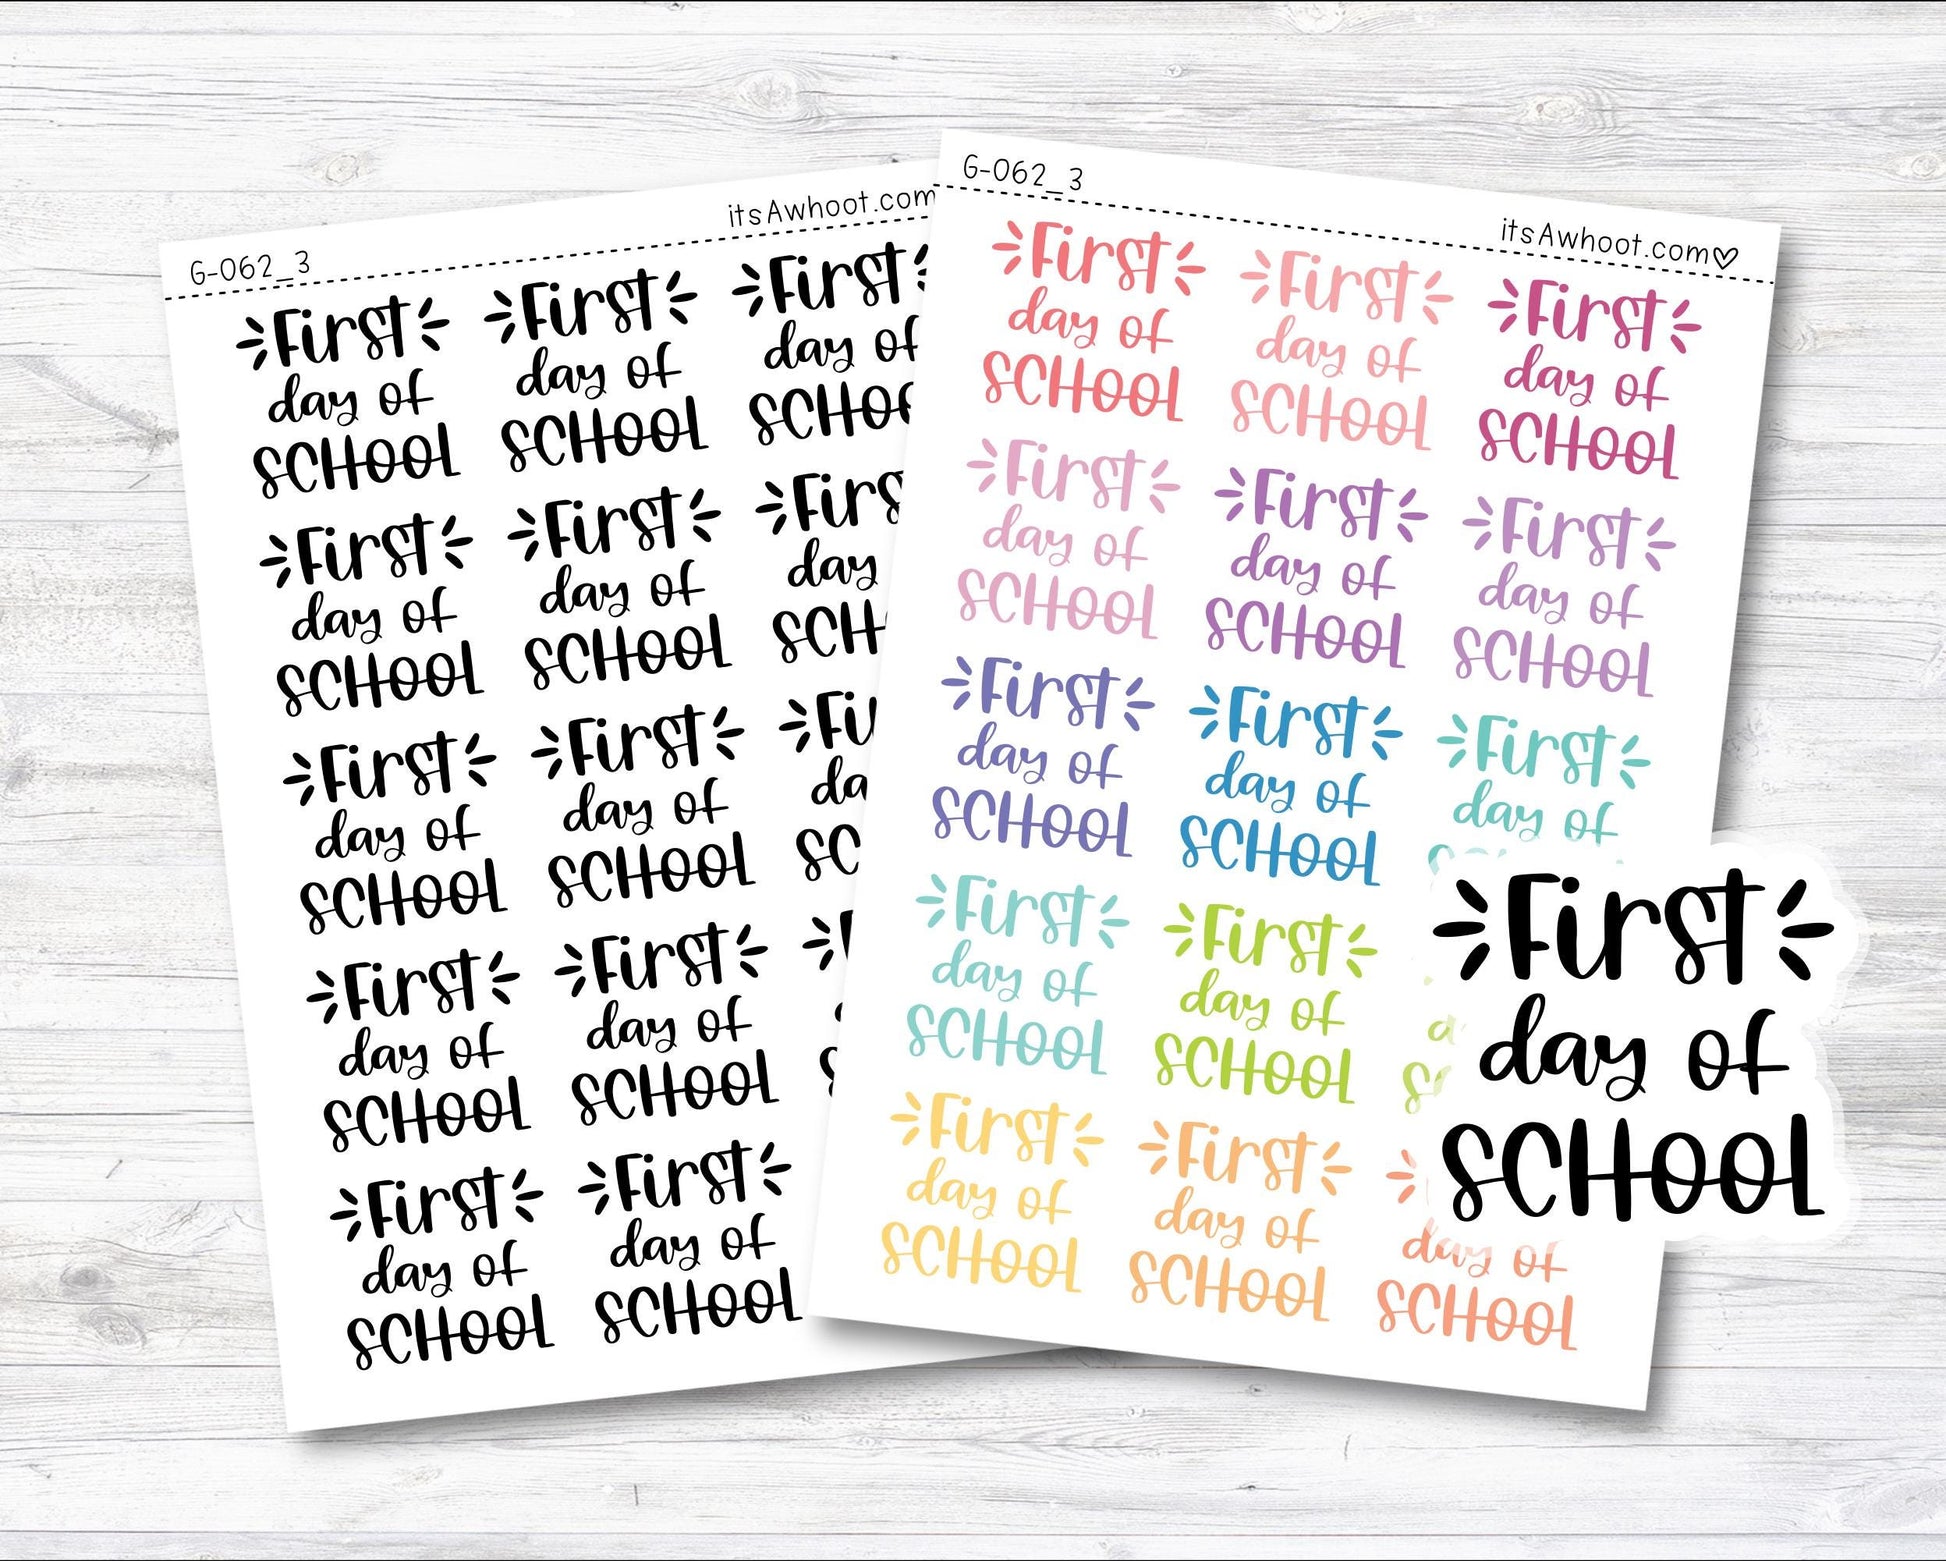 G-062_3
itsAwhoot.com
First First First
day of day of day of
SCHOOL SCHOOL
First First
day of day of day
SCHOOL SCHOOL
First First
day of day of
SCHOOL SCHOOL
First First
day of day of
SCHOOL SCHOOL
First First
day of day of
SCHOOL SCHOOL
G-062_3
itsAwhoot.com♡
First First First
day of day of day of
SCHOOL SCHOOL SCHOOL
First First First
day of day of day of
SCHOOL SCHOOL SCHOOL
First First First
day of day of day of
SCHOOL SCHOOL
First First
day of day of
SCHOOL SCHOOL
First First
day of day of day of
SCHOOL SCHOOL SCHOOL
First
day of
SCHOOL